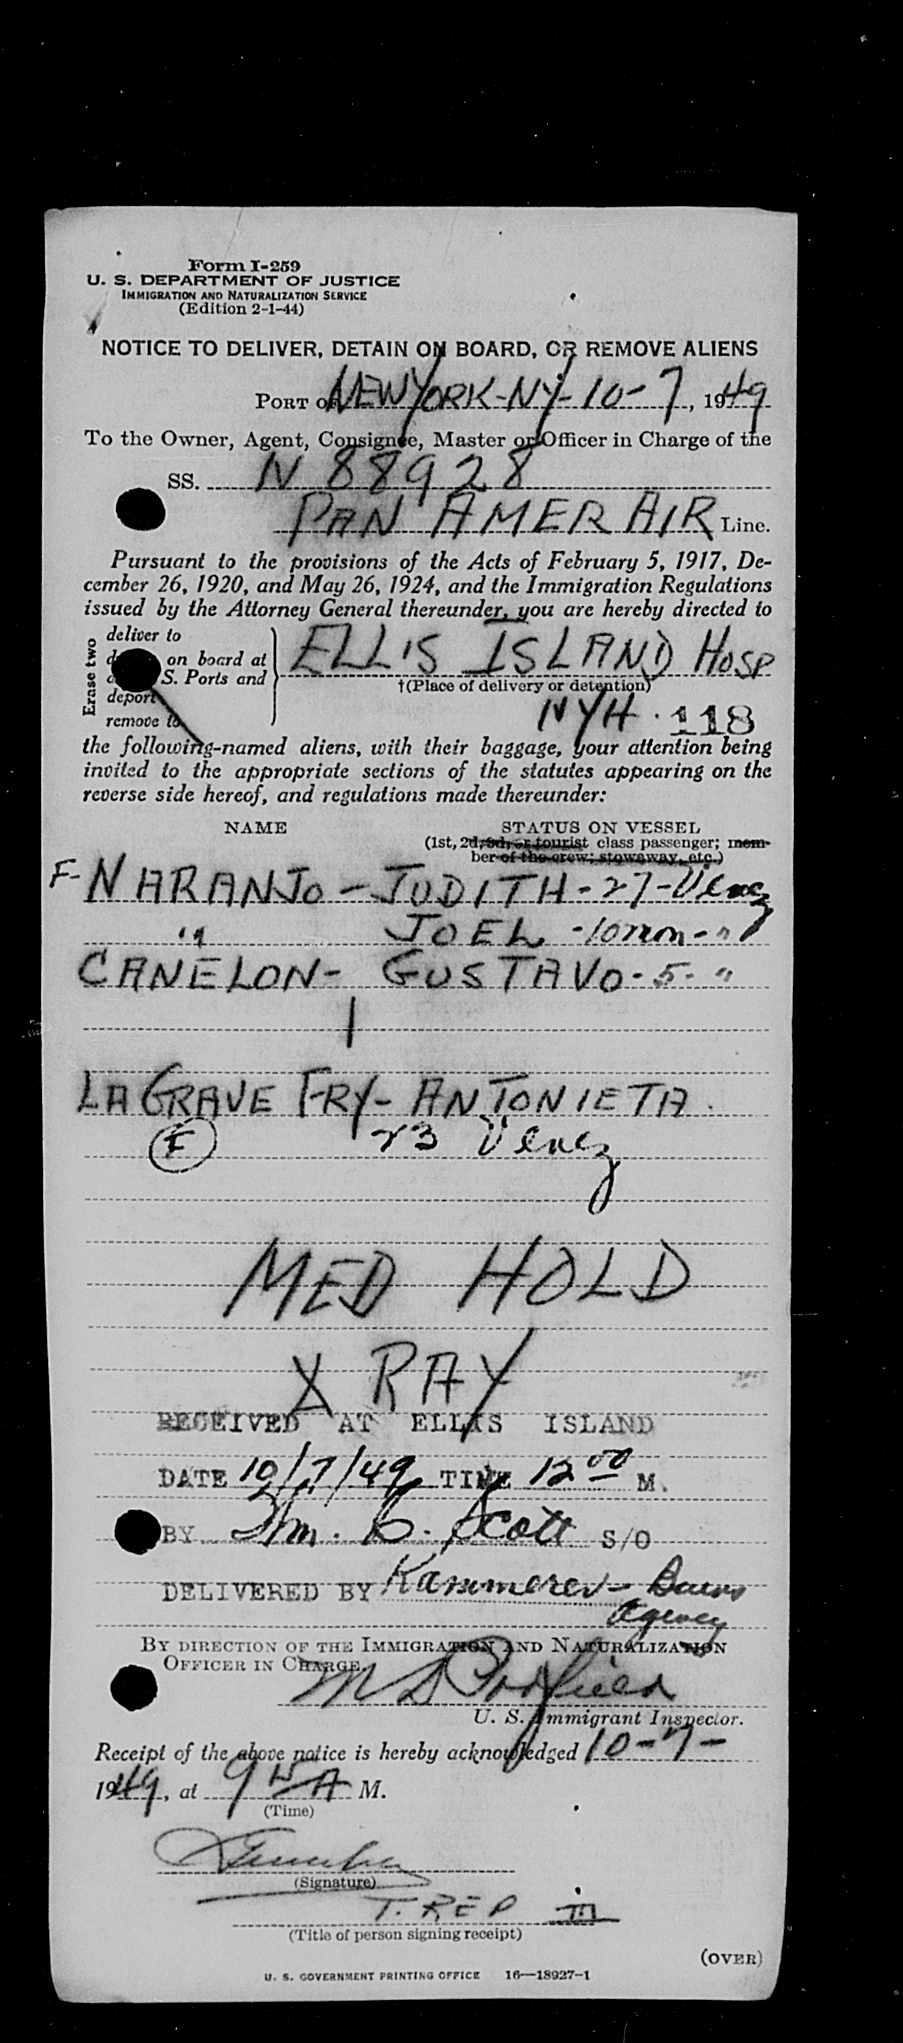 Form I-259
U. S. DEPARTMENT OF JUSTICE
IMMIGRATION AND NATURALIZATION SERVICE
(Edition 2-1-44)
NOTICE TO DELIVER, DETAIN ON BOARD, OR REMOVE ALIENS
PORT OF NEW YORK-NY-10-7, 1949
To the Owner, Agent, Consignee, Master or Officer in Charge of the
SS. N 88928
PAN AMER AIR Line.
Pursuant to the provisions of the Acts of February 5, 1917, De-
cember 26, 1920, and May 26, 1924, and the Immigration Regulations
issued by the Attorney General thereunder, you are hereby directed to
Erase two
deliver to
on board at
S. Ports and
deport
remove to
ELLIS ISLAND HOSP
†(Place of delivery or detention)
NYH. 118
the following-named aliens, with their baggage, your attention being
invited to the appropriate sections of the statutes appearing on the
reverse side hereof, and regulations made thereunder:
NAME STATUS ON VESSEL
(1st, 2d, 3d, or tourist class passenger; mem-
ber of the crew; stowaway, etc.)
F- NARANJO - JUDITH - 27 - Venez
" JOEL - 10 mon - "
CANELON - GUSTAVO - 5 - "
1
LA GRAVE FRY - ANTONIETA.
F 23 Venez
MED HOLD
X RAY
RECEIVED AT ELLIS ISLAND
DATE 10/7/49 TIME 12 00 M.
BY Wm. C. Scott S/O
DELIVERED BY Kammerer - Burns
Agency
BY DIRECTION OF THE IMMIGRATION AND NATURALIZATION
OFFICER IN CHARGE
U. S. Immigrant Inspector.
Receipt of the above notice is hereby acknowledged 10-7-
1949, at 9 15 A M.
(Time)
(Signature)
T. REP
(Title of person signing receipt)
(OVER)
U. S. GOVERNMENT PRINTING OFFICE 16—18927-1